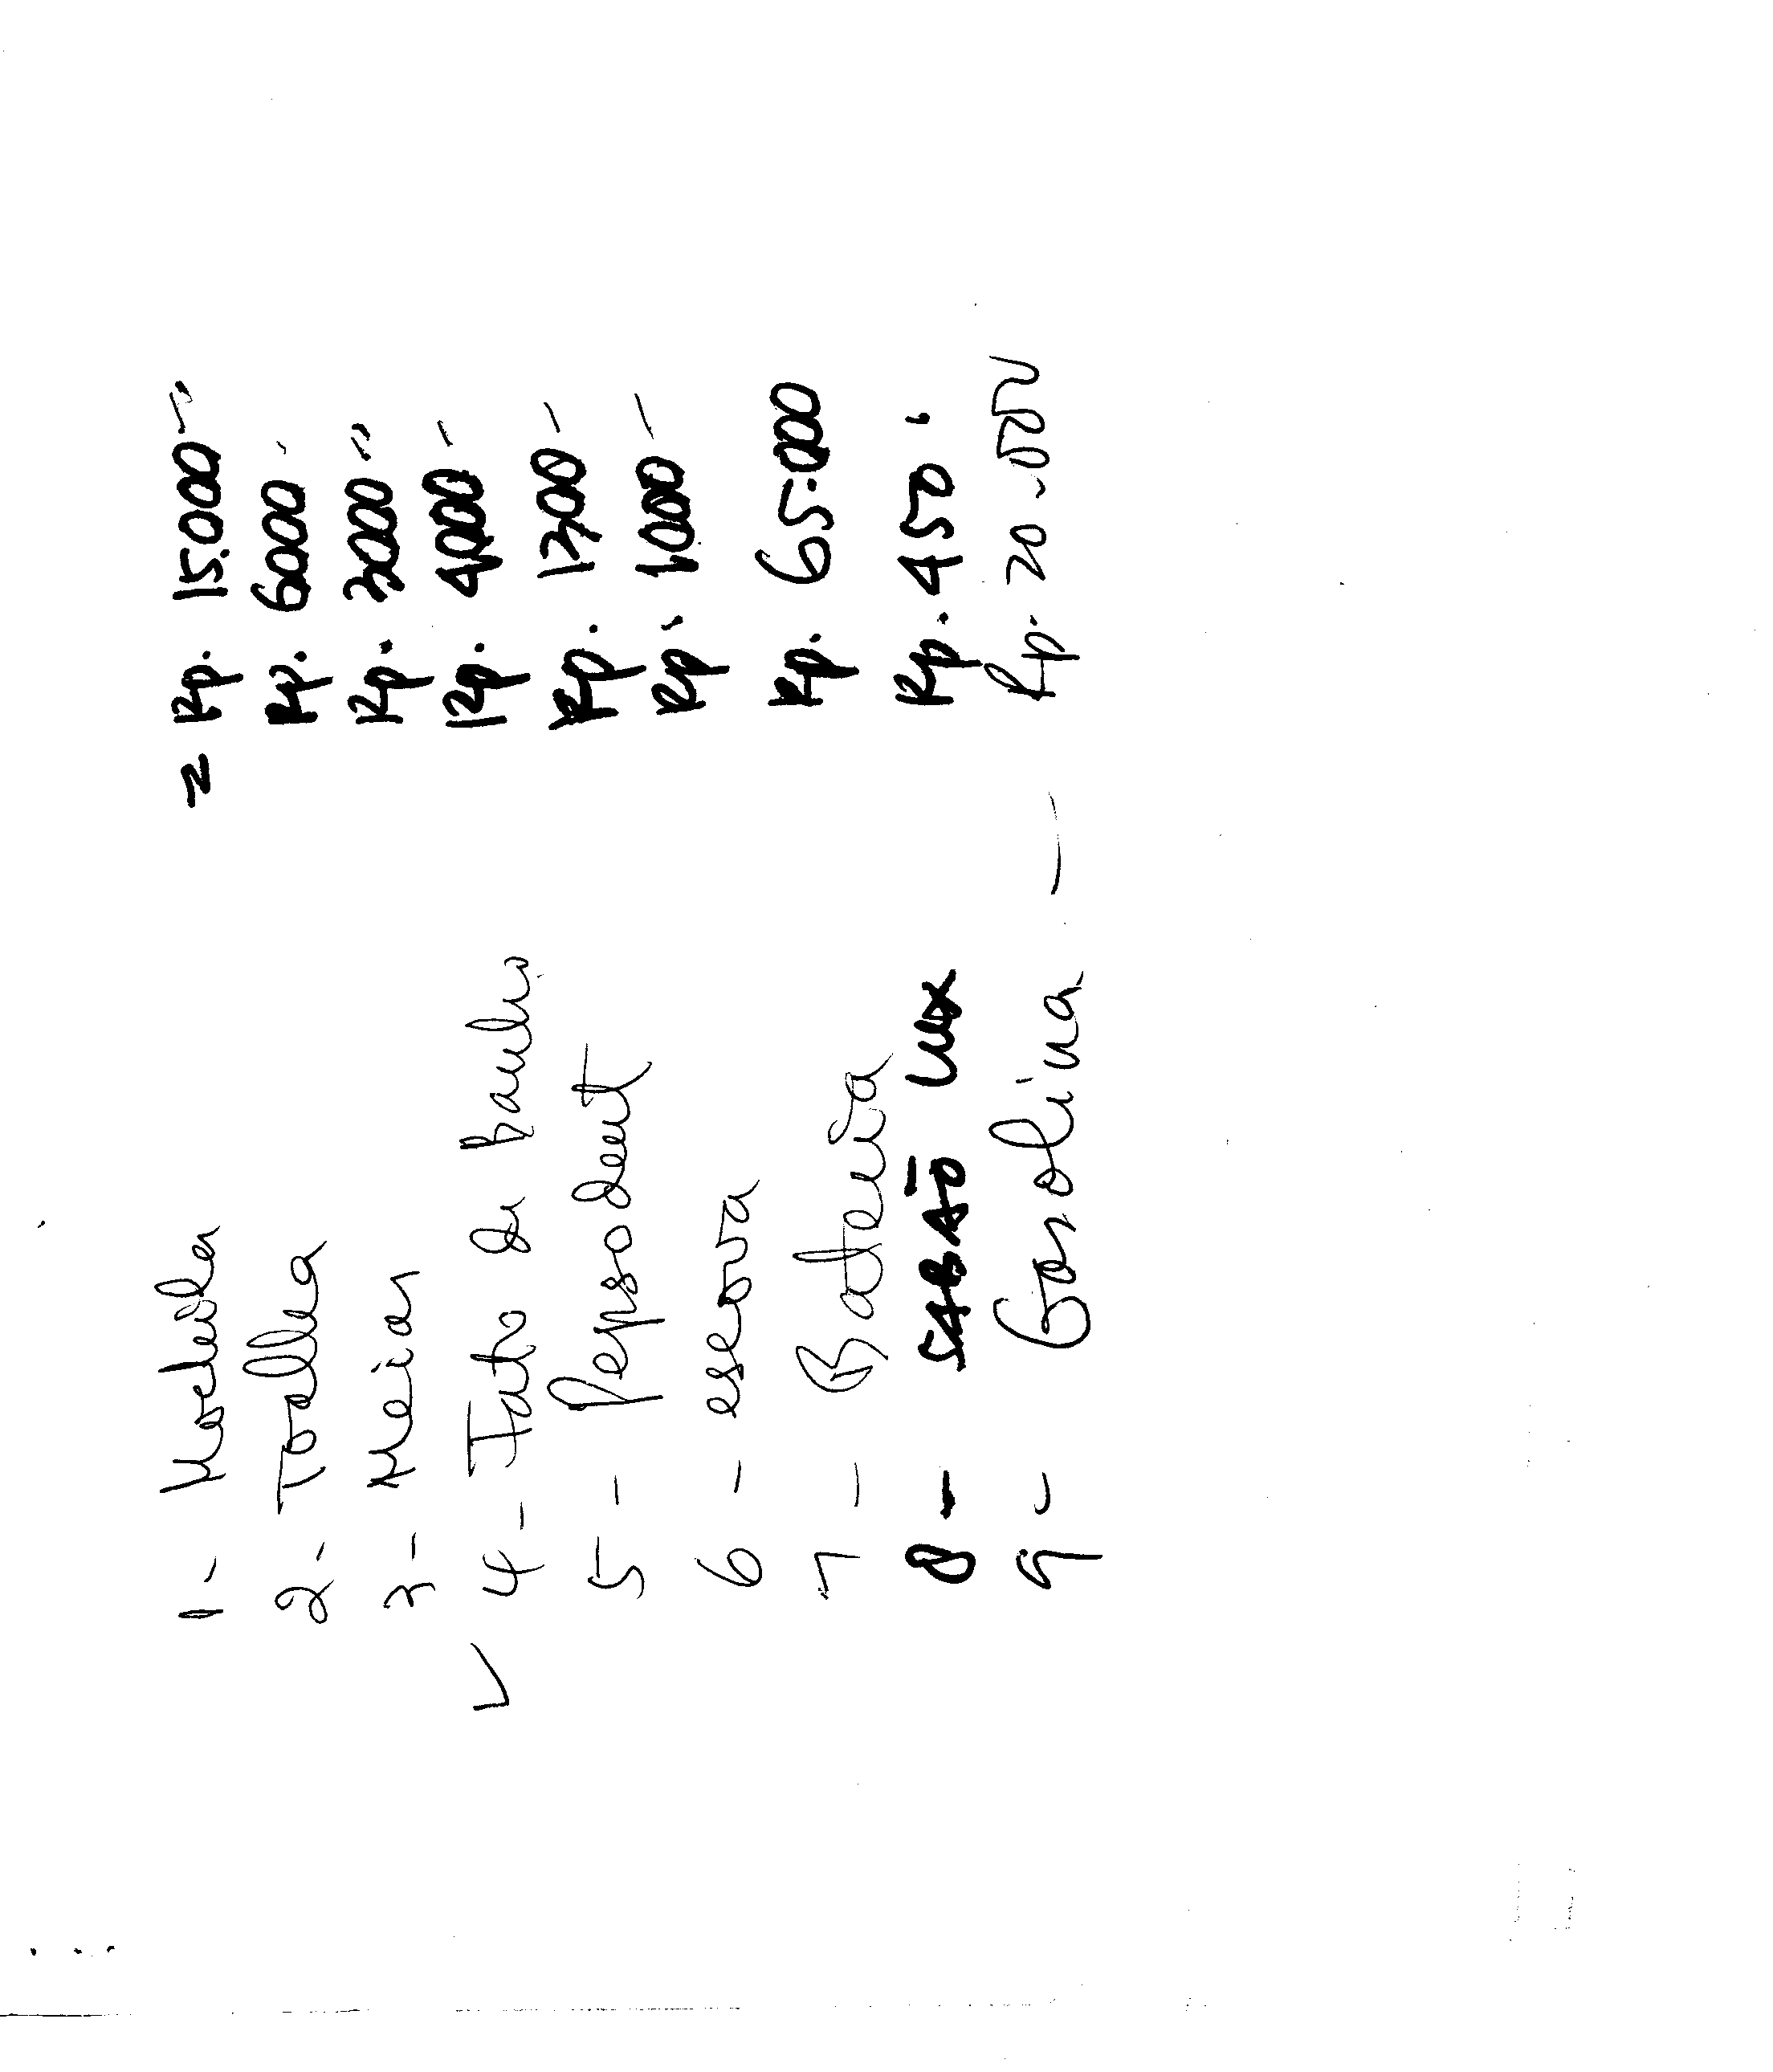 1- Mochila = Rp. 15.000-"
2- Toalha Rp. 6000-
3- Meias Rp. 3000"
✓ 4- Fato de banho Rp. 4,000-
5- Pepsodent Rp. 1300-
6- escova Rp. 1,000-
7- Bateria Rp. 65.000
8- SABÃO LUX Rp. 450.
9- Gasolina - Rp. 20.000